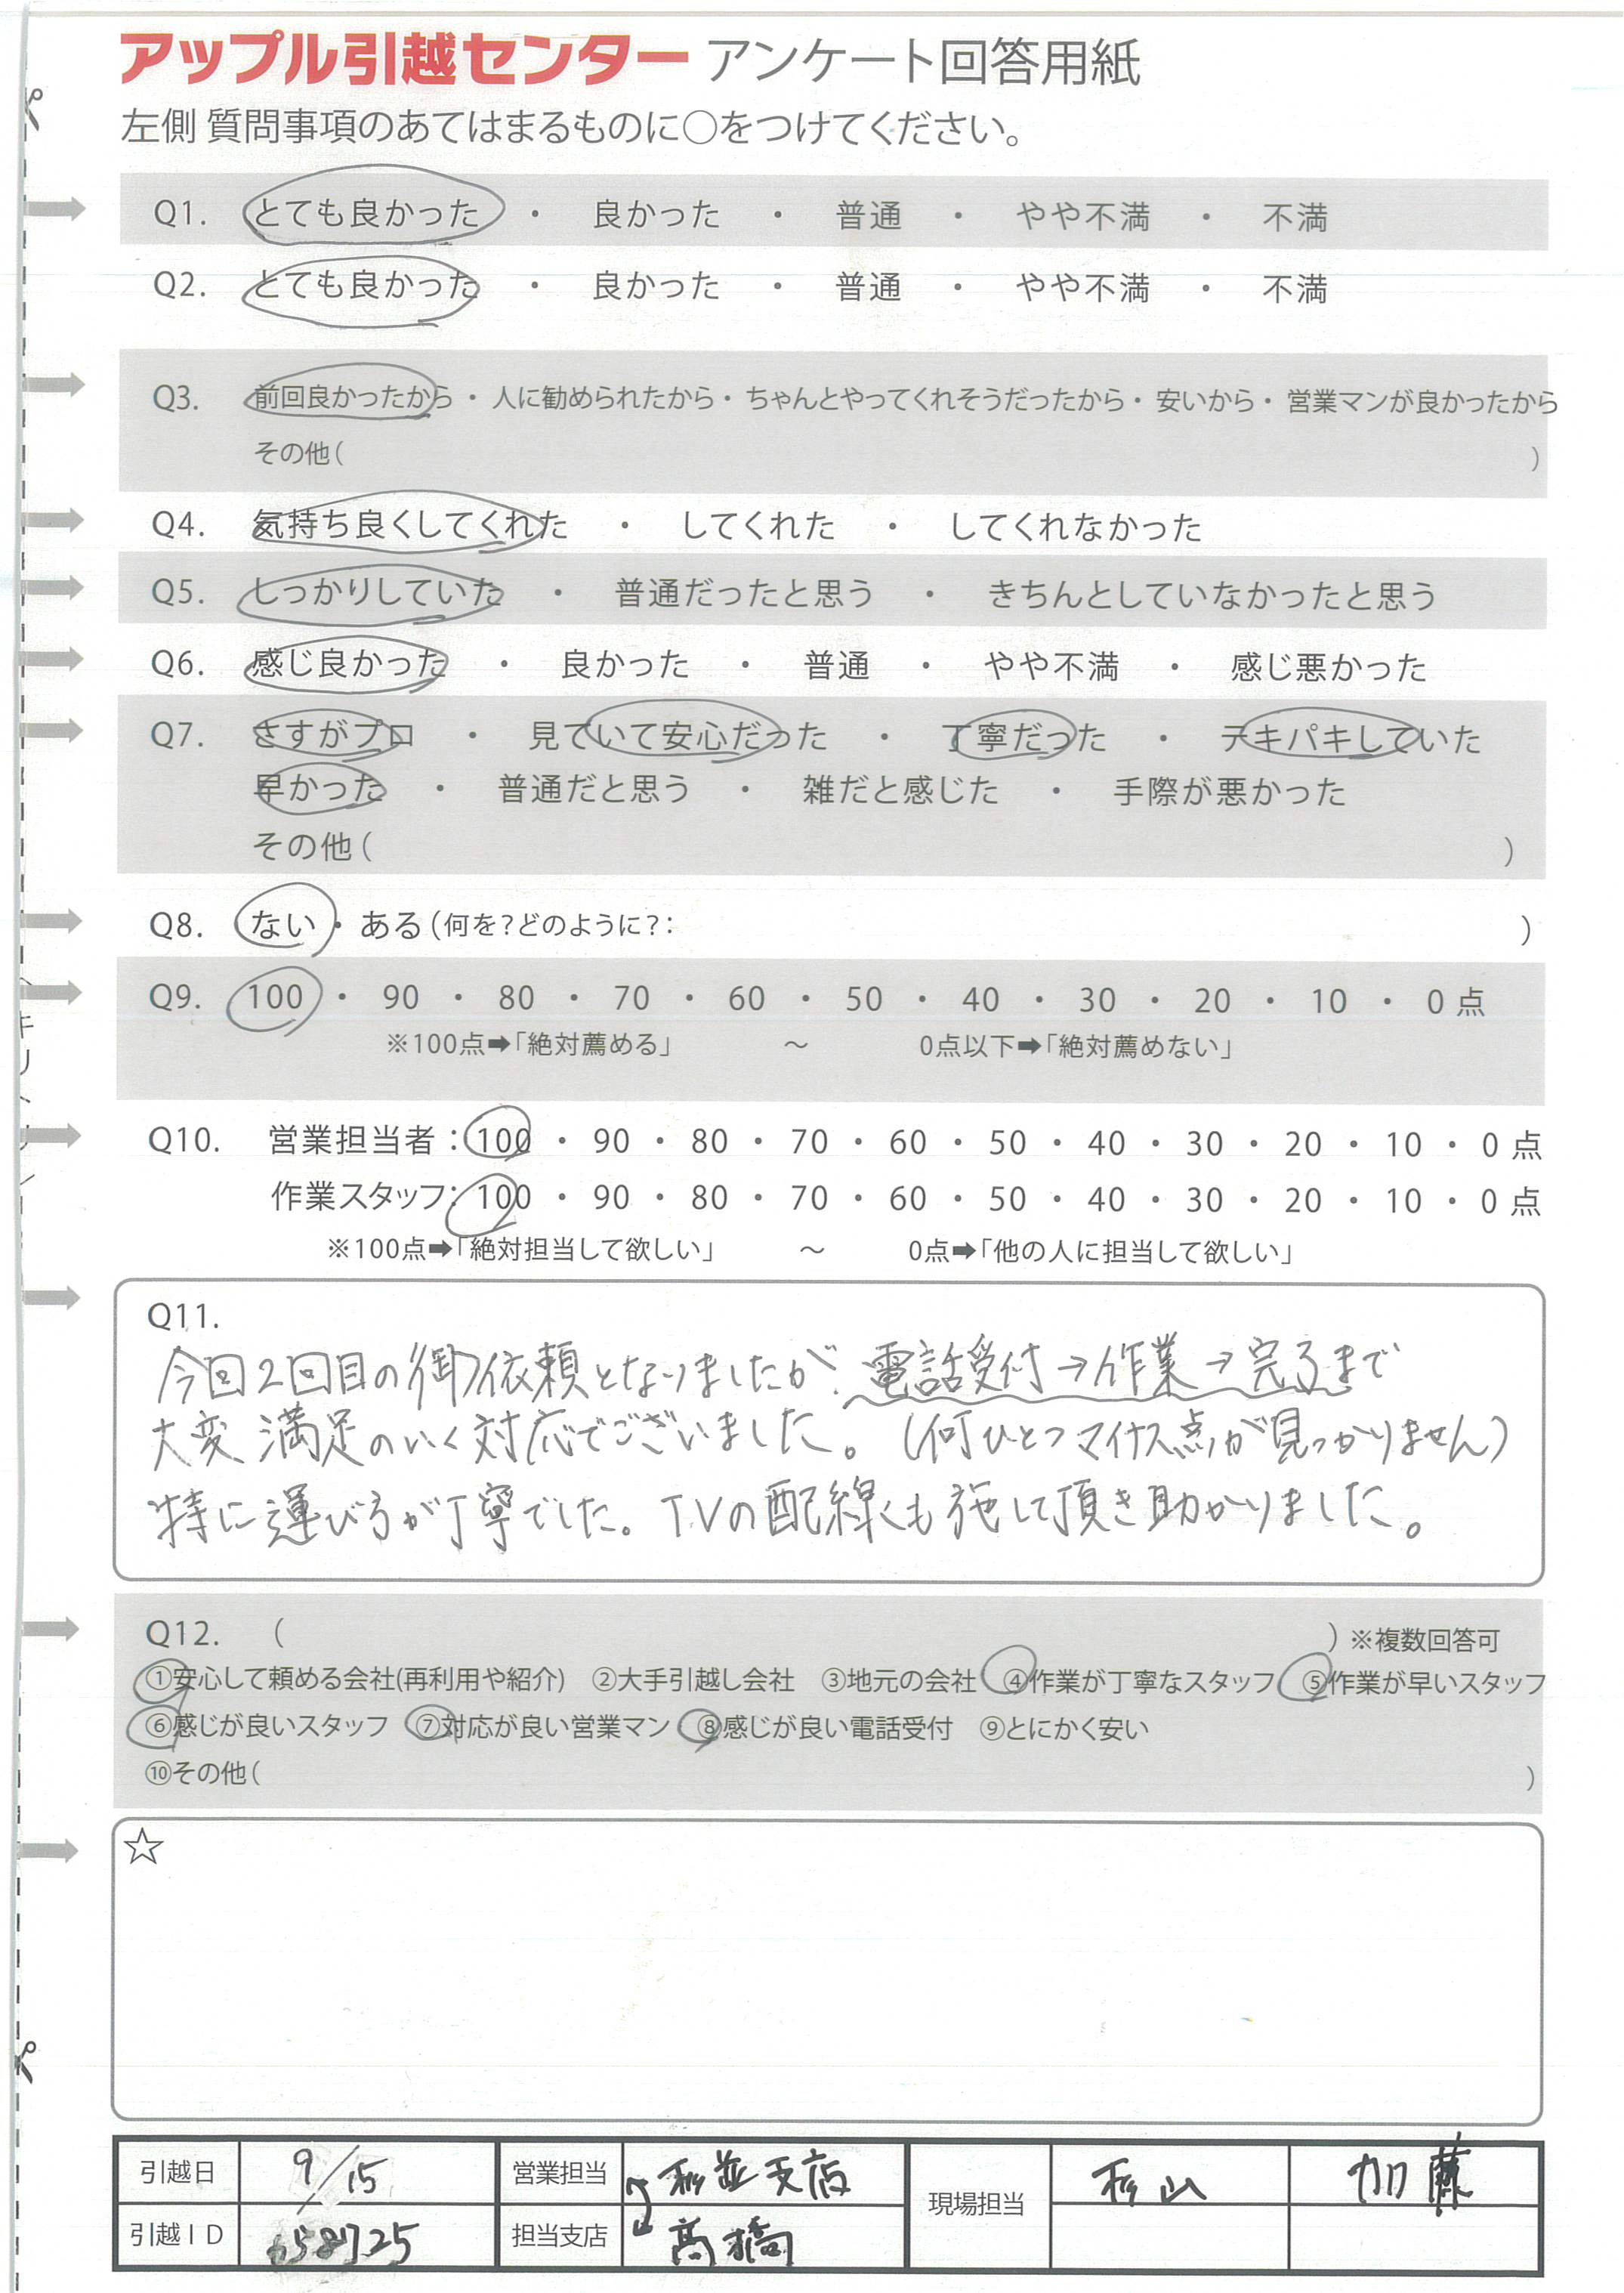 アップル引越センター アンケート回答用紙
左側 質問事項のあてはまるものに○をつけてください。
Q1. とても良かった ・ 良かった ・ 普通 ・ やや不満 ・ 不満
Q2. とても良かった ・ 良かった ・ 普通 ・ やや不満 ・ 不満
Q3. 前回良かったから ・ 人に勧められたから ・ ちゃんとやってくれそうだったから ・ 安いから ・ 営業マンが良かったから
その他( )
Q4. 気持ち良くしてくれた ・ してくれた ・ してくれなかった
Q5. しっかりしていた ・ 普通だったと思う ・ きちんとしていなかったと思う
Q6. 感じ良かった ・ 良かった ・ 普通 ・ やや不満 ・ 感じ悪かった
Q7. さすがプロ ・ 見ていて安心だった ・ 丁寧だった ・ テキパキしていた
早かった ・ 普通だと思う ・ 雑だと感じた ・ 手際が悪かった
その他( )
Q8. ない ・ ある(何を?どのように?: )
Q9. 100 ・ 90 ・ 80 ・ 70 ・ 60 ・ 50 ・ 40 ・ 30 ・ 20 ・ 10 ・ 0 点
※100点➡「絶対薦める」 ～ 0点以下➡「絶対薦めない」
Q10. 営業担当者:100 ・ 90 ・ 80 ・ 70 ・ 60 ・ 50 ・ 40 ・ 30 ・ 20 ・ 10 ・ 0 点
作業スタッフ:100 ・ 90 ・ 80 ・ 70 ・ 60 ・ 50 ・ 40 ・ 30 ・ 20 ・ 10 ・ 0 点
※100点➡「絶対担当して欲しい」 ～ 0点➡「他の人に担当して欲しい」
Q11.
今回2回目の御依頼となりましたが、電話受付→作業→完了まで
大変満足のいく対応でございました。(何ひとつマイナス点が見つかりません)
特に運び方が丁寧でした。TVの配線も施して頂き助かりました。
Q12. ( ) ※複数回答可
①安心して頼める会社(再利用や紹介) ②大手引越し会社 ③地元の会社 ④作業が丁寧なスタッフ ⑤作業が早いスタッフ
⑥感じが良いスタッフ ⑦対応が良い営業マン ⑧感じが良い電話受付 ⑨とにかく安い
⑩その他( )
☆
引越日 9/15 営業担当 杉並支店 現場担当 杉山 加藤
引越ID 658725 担当支店 高橋